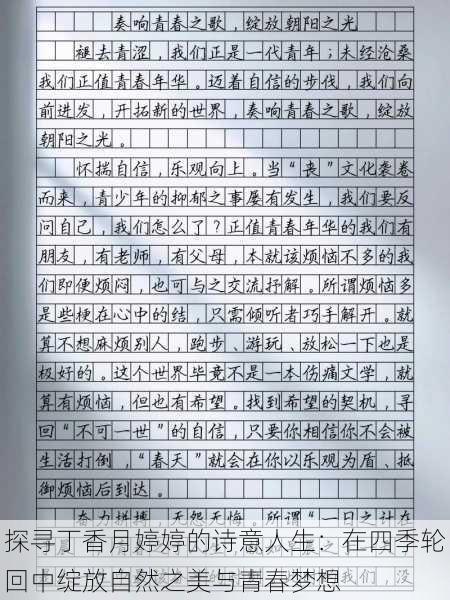 奏响青春之歌，绽放朝阳之光
褪去青涩，我们正是一代青年；未经沧桑
我们正值青春年华。迈着自信的步伐，我们向
前进发，开拓新的世界，奏响青春之歌，绽放
朝阳之光。
怀揣自信，乐观向上。当“丧”文化袭卷
而来，青少年的抑郁之事屡有发生，我们要反
问自己，我们怎么了？正值青春年华的我们有
朋友，有老师，有父母，本就该烦恼不多的我
们即便烦闷，也可与之交流抒解。所谓烦恼多
是些梗在心中的结，只需倾听者巧手解开。就
算不想麻烦别人，跑步、游玩、放松一下也是
极好的。这个世界毕竟不是一本伤痛文学，就
算有烦恼，但也有希望。找到希望的契机，寻
回“不可一世”的自信，只要你相信你不会被
生活打倒，“春天”就会在你以乐观为盾、抵
御烦恼后到达。
奋力拼搏，无怨无悔。所谓“一日之计在
探寻丁香月婷婷的诗意人生：在四季轮
回中绽放自然之美与青春梦想